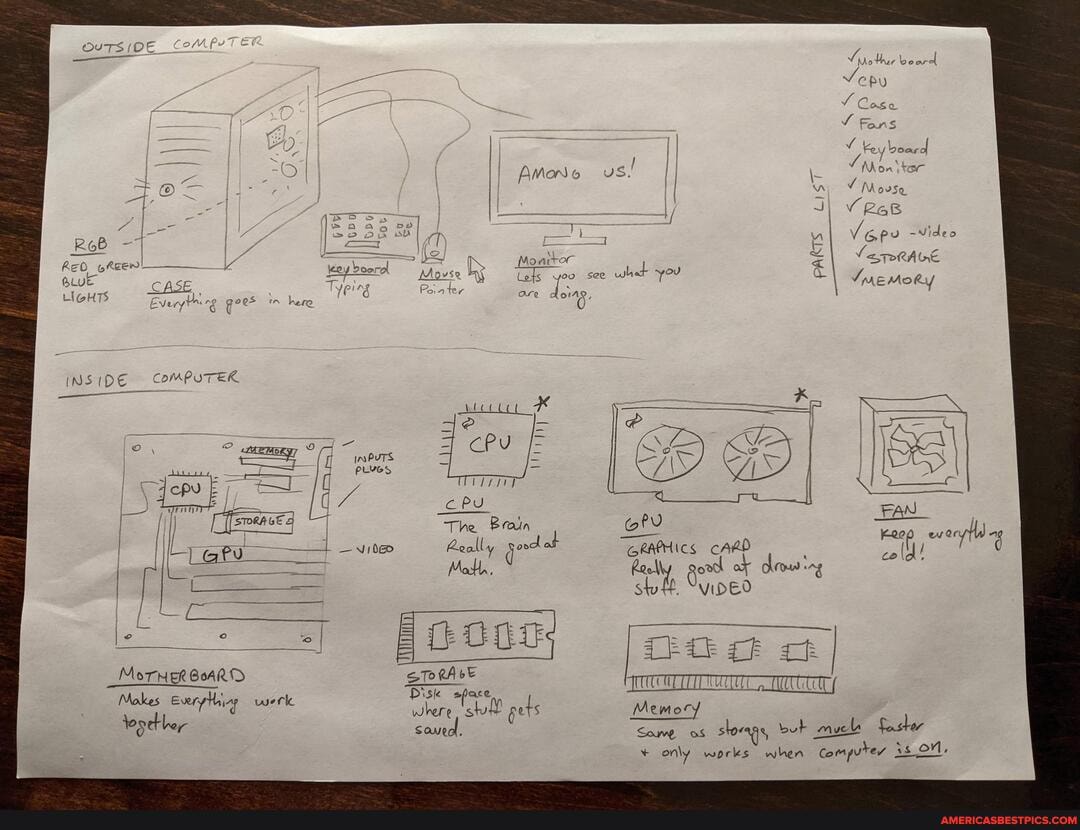 OUTSIDE COMPUTER
RGB
RED GREEN
BLUE
LIGHTS
CASE
Everything goes in here
Keyboard
Typing
Mouse
Pointer
AMONG US!
Monitor
Lets you see what you
are doing.
PARTS LIST
✓ Motherboard
✓ CPU
✓ Case
✓ Fans
✓ Keyboard
✓ Monitor
✓ Mouse
✓ RGB
✓ GPU - Video
✓ STORAGE
✓ MEMORY
INSIDE COMPUTER
MEMORY
CPU
STORAGE
GPU
INPUTS
PLUGS
VIDEO
MOTHERBOARD
Makes Everything work
together
*
CPU
CPU
The Brain
Really good at
Math.
*
GPU
GRAPHICS CARD
Really good at drawing
stuff. VIDEO
FAN
Keep everything
cold!
STORAGE
Disk space
where stuff gets
saved.
Memory
Same as storage, but much faster
+ only works when computer is on.
AMERICASBESTPICS.COM